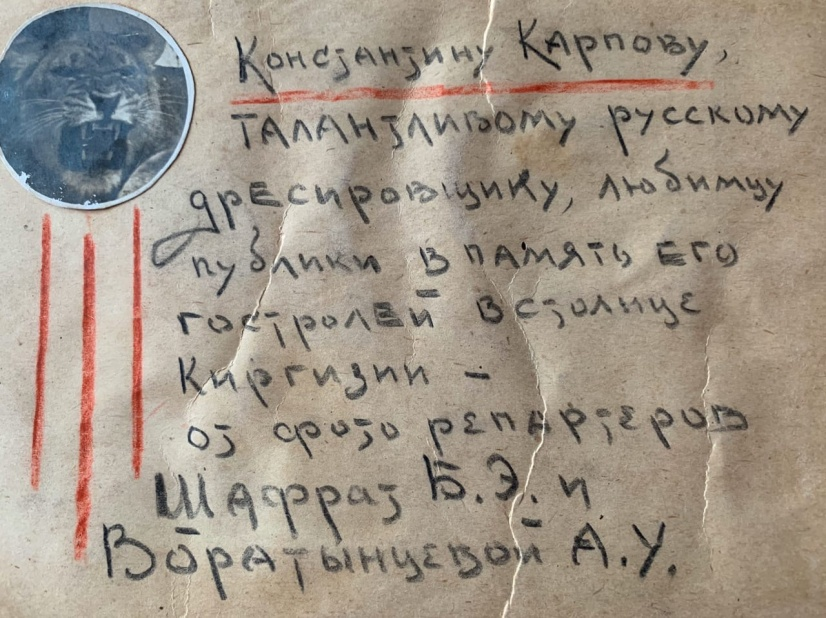 Константину Карпову,
талантливому русскому
дресировщику, любимцу
публики в память его
гостролей в столице
Киргизии –
от фото репортеров
Шафрат Б.Э. и
Воратынцевой А.У.